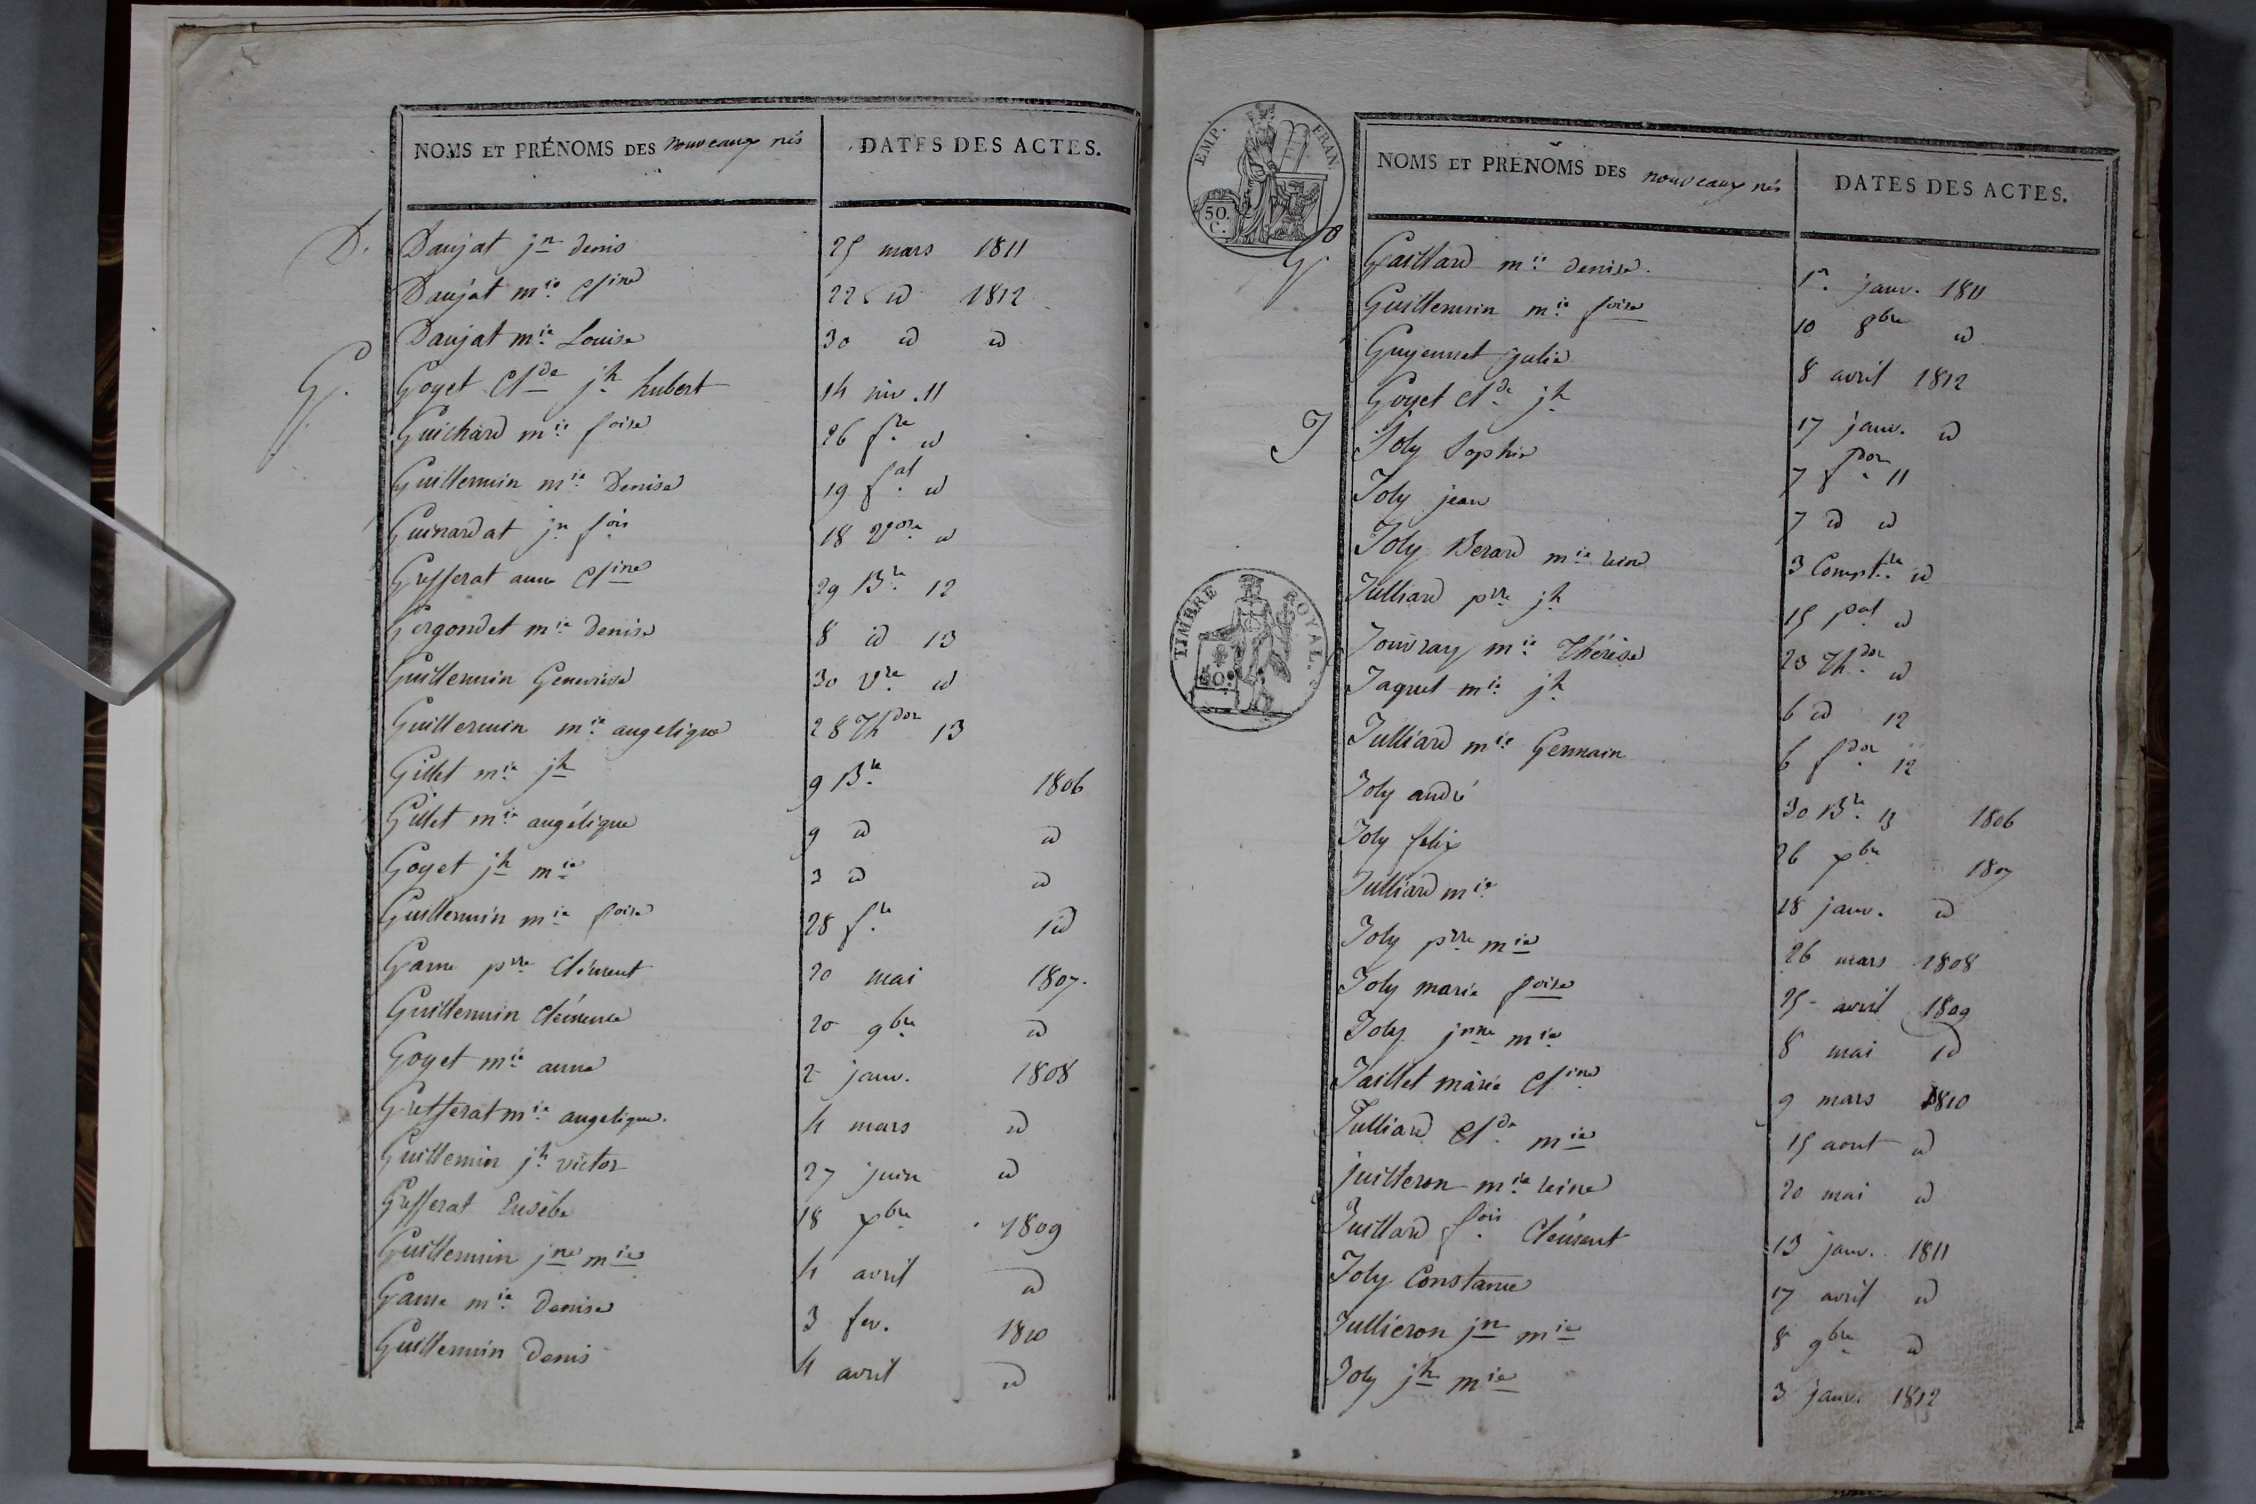 NOMS ET PRÉNOMS DES nouveaux nés DATES DES ACTES.
D. Daujat jn denis 25 mars 1811
Daujat mie Cline 22 id 1812
Daujat mie Louise 30 id id
G. Goyet Clde jh hubert 14 niv. 11
Guichard mie foise 26 fre id
Guillemin mie Denise 19 fal id
Guinardat jn fois 18 Vose id
Grefferat anne Cline 29 Bre 12
Gergondet mie denise 8 id 13
Guillemin Genevieve 30 Vre id
Guillemin mie angelique 28 Thdor 13
Gillet mie jh 9 Bre 1806
Gillet mie angélique 9 id id
Goyet jh mie 3 id id
Guillemin mie foise 28 fre id
Garne prre Clément 20 mai 1807.
Guillemin Clémence 20 9bre id
Goyet mie anne 2 janv. 1808
Grefferat mie angelique. 4 mars id
Guillemin jh victor 27 juin id
Grefferat Eusèbe 18 xbre 1809
Guillemin jne mie 4 avril id
Garne mie Denise 3 fev. 1810
Guillemin Denis 4 avril id
EMP. FRAN.
50. C.
NOMS ET PRÉNOMS DES nouveaux nés DATES DES ACTES.
G. Gaillard mie denise. 1er janv. 1811
Guillemin mie foise 10 8bre id
Guyennet Julie 8 avril 1812
Goyet Clde jh 17 janv. id
J Joly Sophie 7 fdor 11
Joly jean 7 id id
Joly Berard mie reine 3 Comptre id
Julliard prre jh 15 pal id
Jouvray mie Thérèse 23 Thdor id
TIMBRE ROYAL.
50c
Jaquet mie jh 6 id 12
Julliard mie Germain 6 fdor 12
Joly andré 30 Bre 13 1806
Joly felix 26 xbre 1807
Julliard mie 18 janv. id
Joly prre mie 26 mars 1808
Joly marie foise 25 avril 1809
Joly jnne mie 8 mai id
Jaillet marie Cline 9 mars 1810
Julliard Clde mie 15 aout id
juilleron mie reine 20 mai id
Juillard fois Clément 13 janv. 1811
Joly Constance 17 avril id
Jullieron jn mie 8 9bre id
Joly jh mie 3 janv. 1812